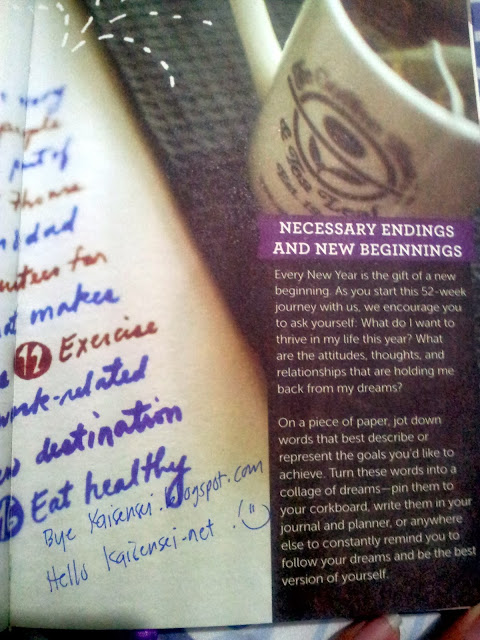 people
part of
dad
for
makes
12 Exercise
work-related
destination
Eat healthy
Bye Kaisensei.blogspot.com
Hello Kaisensei.net !
NECESSARY ENDINGS
AND NEW BEGINNINGS
Every New Year is the gift of a new
beginning. As you start this 52-week
journey with us, we encourage you
to ask yourself: What do I want to
thrive in my life this year? What
are the attitudes, thoughts, and
relationships that are holding me
back from my dreams?
On a piece of paper, jot down
words that best describe or
represent the goals you'd like to
achieve. Turn these words into a
collage of dreams—pin them to
your corkboard, write them in your
journal and planner, or anywhere
else to constantly remind you to
follow your dreams and be the best
version of yourself.